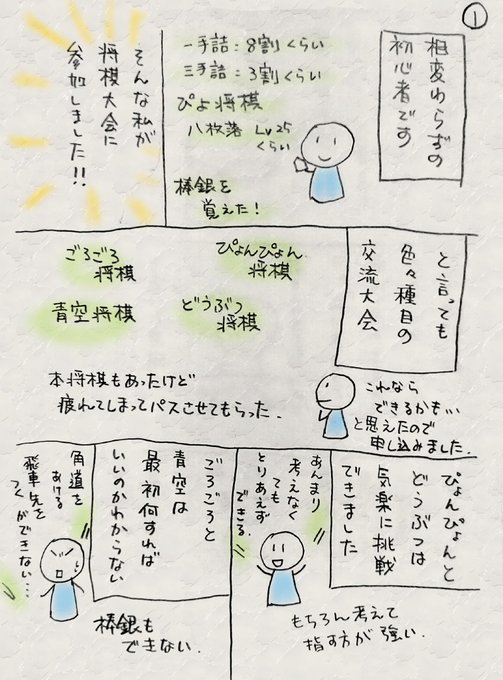 ①
相変わらずの
初心者です
一手詰：8割くらい
三手詰：3割くらい
ぴよ将棋
八枚落 Lv25
くらい
棒銀を
覚えた！
そんな私が
将棋大会に
参加しました!!
と言っても
色々種目の
交流大会
ぴょんぴょん
将棋
ごろごろ
将棋
どうぶつ
将棋
青空将棋
本将棋もあったけど
疲れてしまってパスさせてもらった.
これなら
できるかも...
と思えたので
申し込みました.
ぴょんぴょんと
どうぶつは
気楽に挑戦
できました
あんまり
考えなく
ても
とりあえず
できる.
もちろん考えて
指す方が強い.
ごろごろと
青空は
最初何すれば
いいのかわからない
角道を
あける
飛車先を
つく
ができない...
棒銀も
できない.